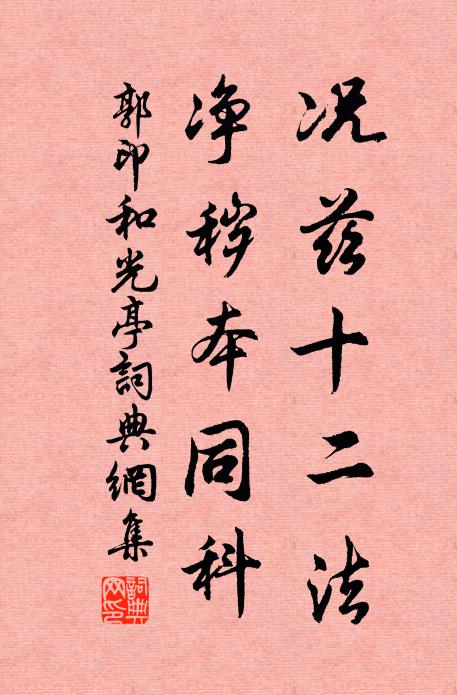 况兹十二法
净秽本同科
郭印和光亭詞典網集
詞典網印